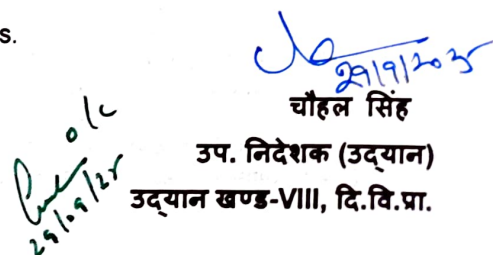 s.
29/9/2025
चौहल सिंह
o/c
उप. निदेशक (उद्यान)
उद्यान खण्ड-VIII, दि.वि.प्रा.
29/09/25